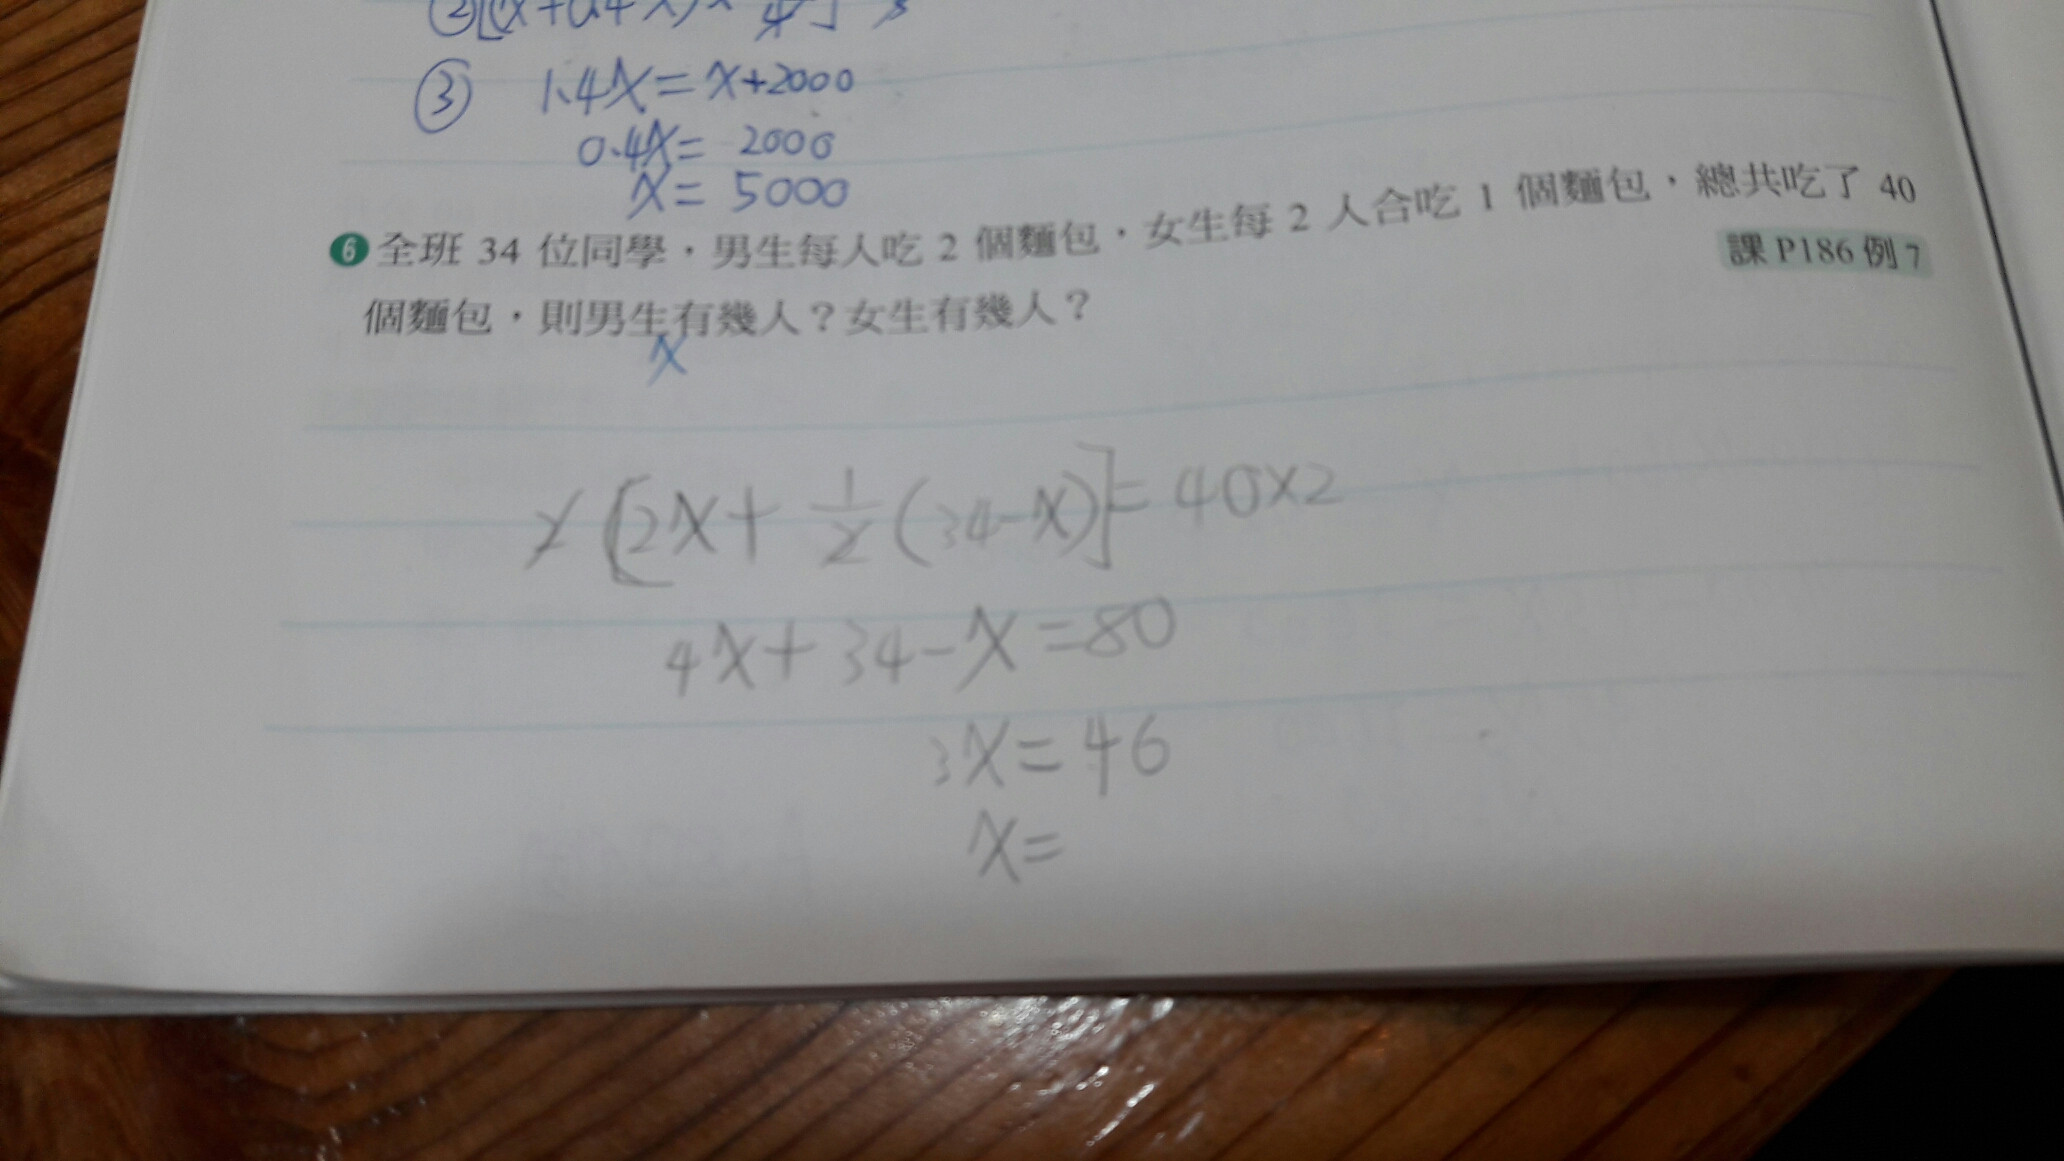 ③ 1.4x=x+2000
0.4x= 2000
x= 5000
6 全班 34 位同學，男生每人吃 2 個麵包，女生每 2 人合吃 1 個麵包，總共吃了 40
課 P186 例 7
個麵包，則男生有幾人？女生有幾人？
x
2[2x+1/2(34-x)]=40×2
4x+34-x=80
3x=46
x=